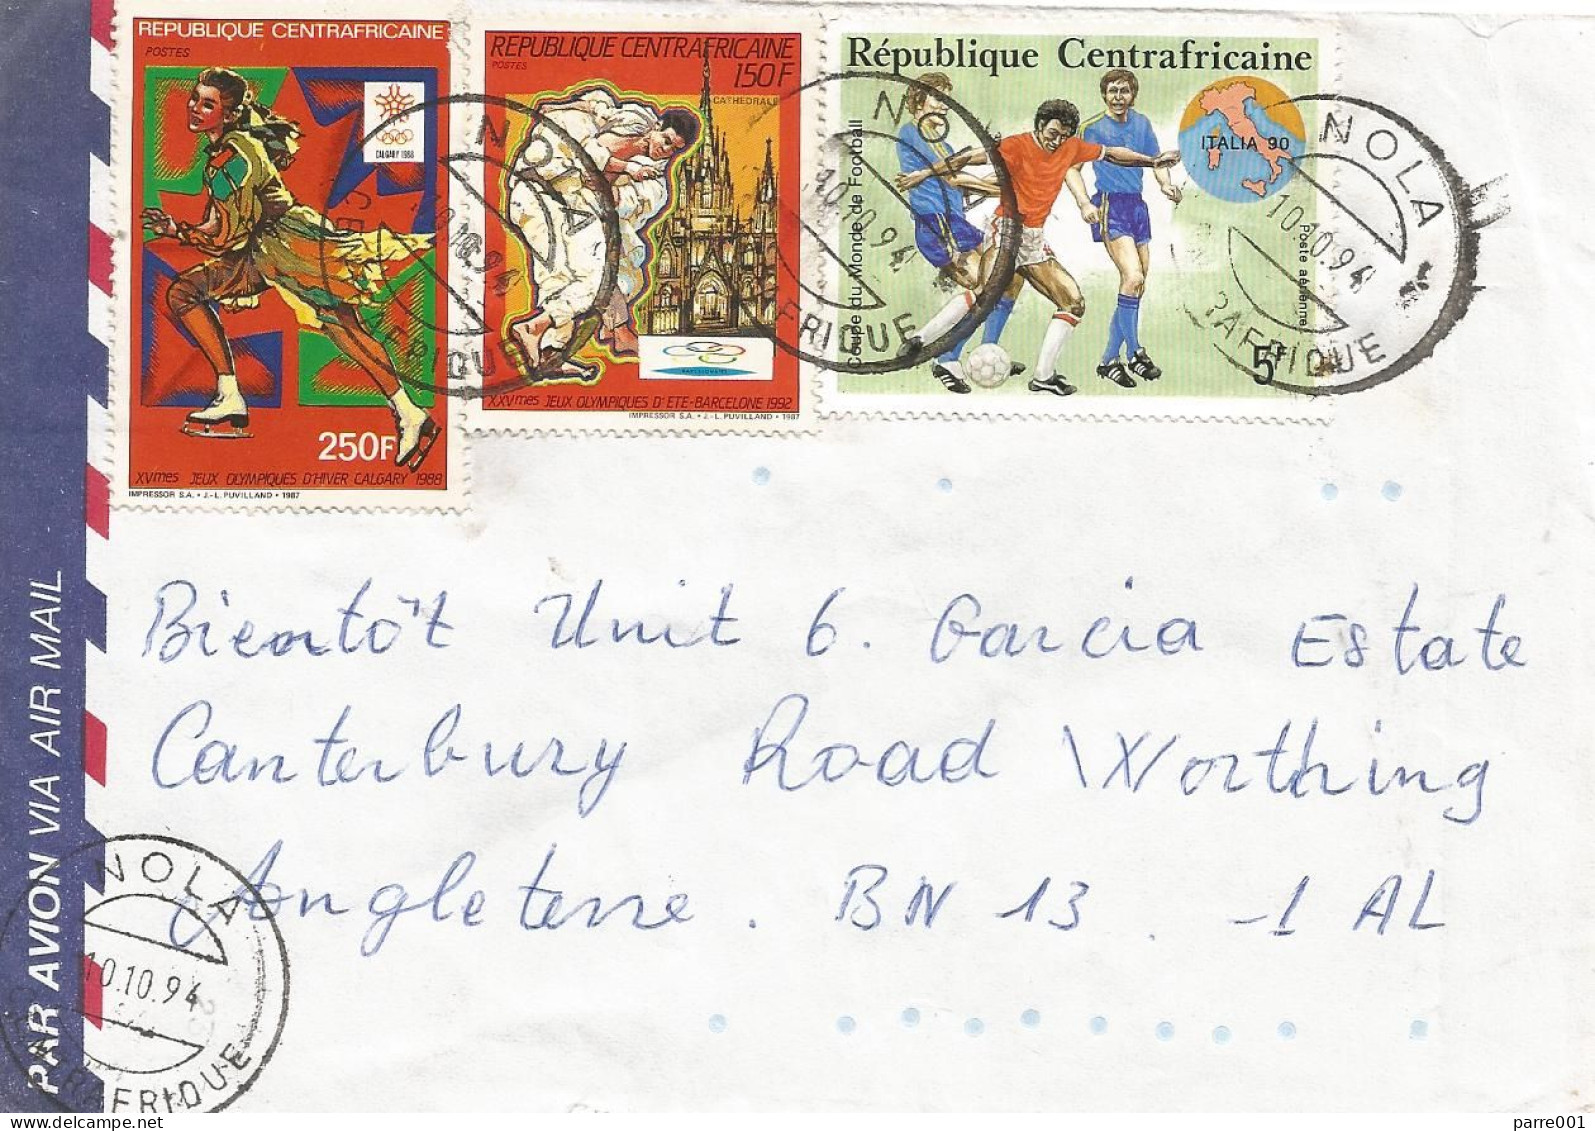 REPUBLIQUE CENTRAFRICAINE
POSTES
CALGARY 1988
250F
XVmes JEUX OLYMPIQUES D'HIVER CALGARY 1988
IMPRESSOR S.A. • J.-L. PUVILLAND • 1987
REPUBLIQUE CENTRAFRICAINE
POSTES
150F
CATHEDRALE
XXVmes JEUX OLYMPIQUES D'ETE-BARCELONE 1992
IMPRESSOR S.A. • J.-L. PUVILLAND • 1987
République Centrafricaine
Coupe du Monde de Football
ITALIA 90
Poste aérienne
5F
NOLA
10.10.94
CENTRAFRIQUE
NOLA
10.10.94
AFRIQUE
NOLA
10.10.94
RAFRIQUE
PAR AVION VIA AIR MAIL
Bientôt Unit 6. Garcia Estate
Canterbury Road Worthing
Angleterre. BN 13. -1 AL
NOLA
10.10.94
CENTRAFRIQUE
parre001